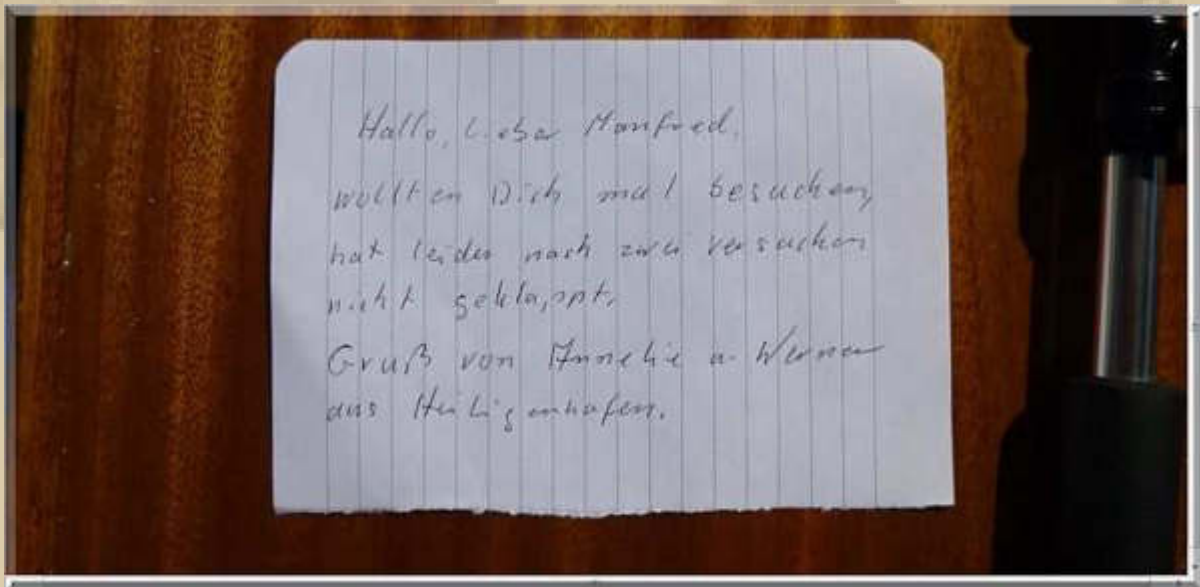 Hallo, Lieber Manfred,
wollten Dich mal besuchen,
hat leider nach zwei versuchen
nicht geklappt.
Gruß von Annelie u. Werner
aus Heiligenhafen.